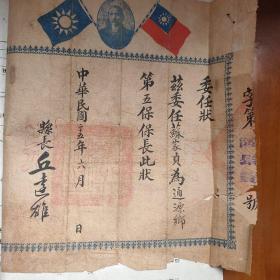 字第號
委任狀
茲委任蘇家貞為通源鄉
第五保保長此狀
縣長丘遠雄
中華民國廿五年六月 日